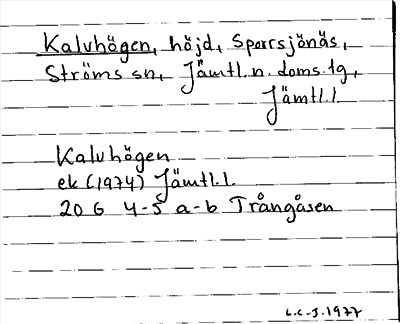 Kalvhögen, höjd, Sporrsjönäs,
Ströms sn, Jämtl. n. doms. tg,
Jämtl. l.
Kalvhögen
ek (1974) Jämtl. l.
20 G 4-5 a-b Trångåsen
L.C-J. 1977